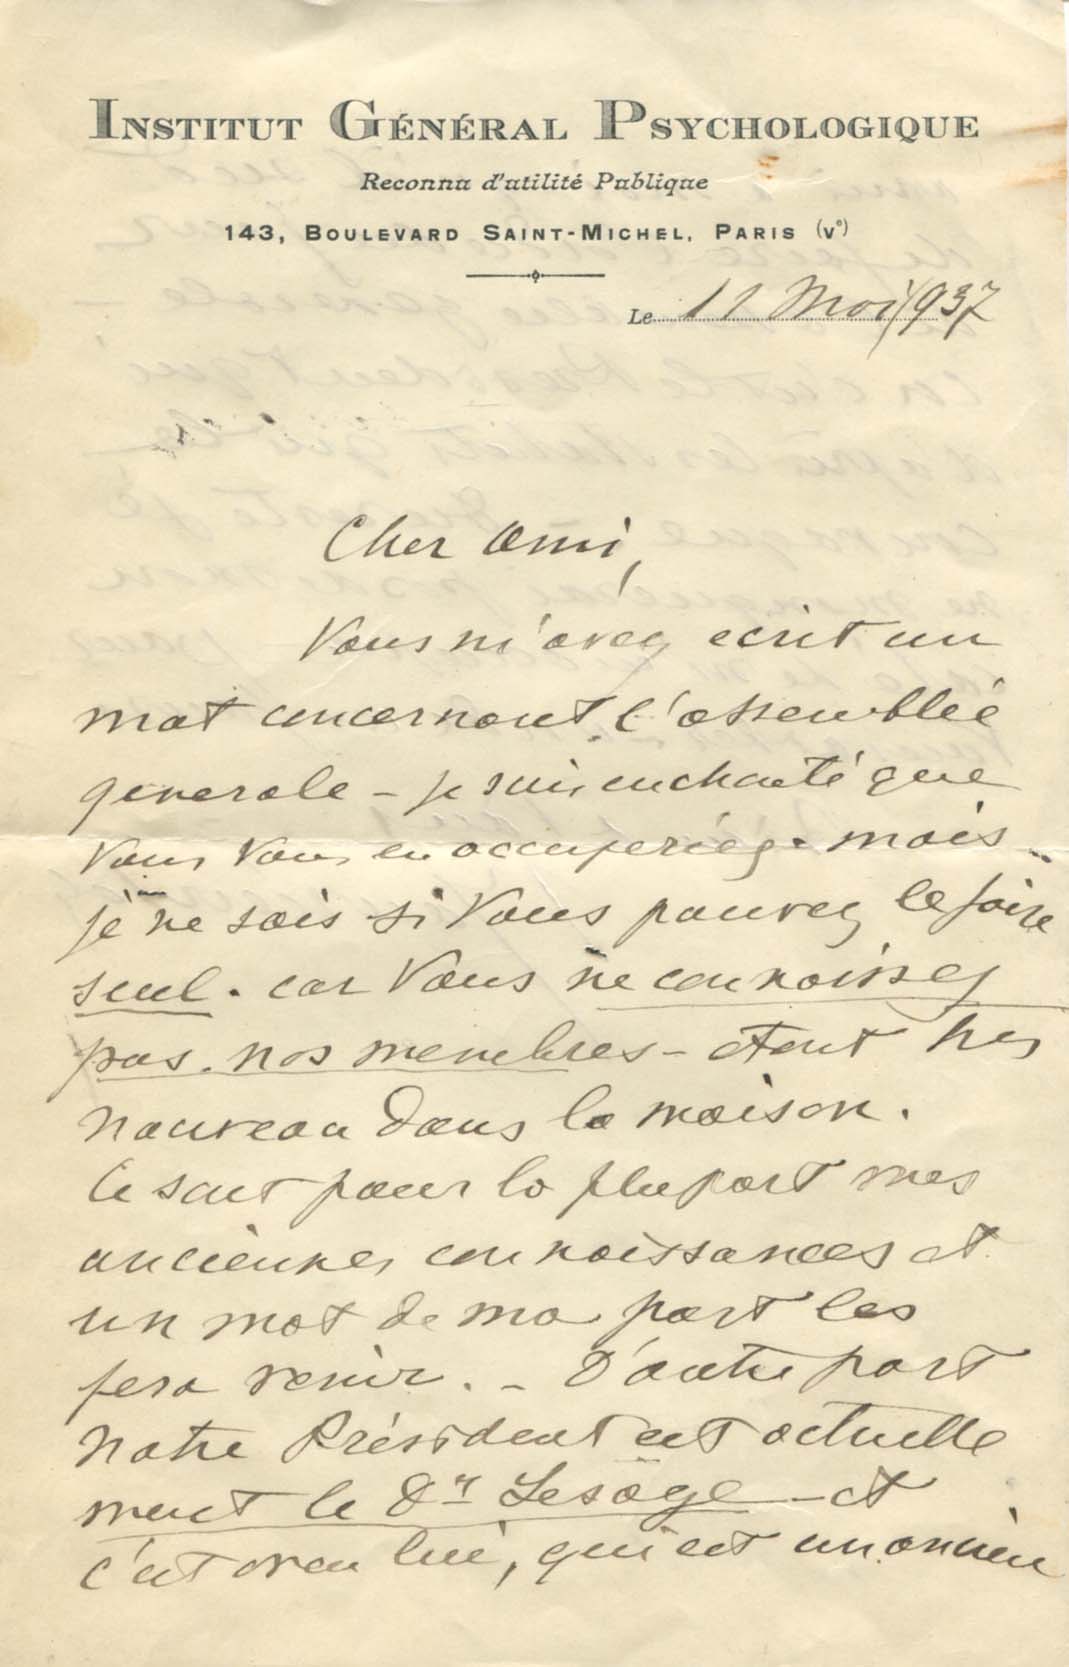 INSTITUT GÉNÉRAL PSYCHOLOGIQUE
Reconnu d'utilité Publique
143, BOULEVARD SAINT-MICHEL, PARIS (Ve)
Le 11 Mai 1937
Cher Ami,
Vous m'avez ecrit un
mot concernant l'assemblée
generale – je suis enchanté que
vous vous en occuperiez. mais
je ne sais si vous pouvez le faire
seul. car vous ne connaissez
pas. nos membres – etant très
nouveau dans la maison.
Ce sont pour la plupart mes
anciennes connaissances et
un mot de ma part les
fera venir. – D'autre part
notre Président est actuelle
ment le Dr Lesage – et
c'est avec lui, qui est un ancien